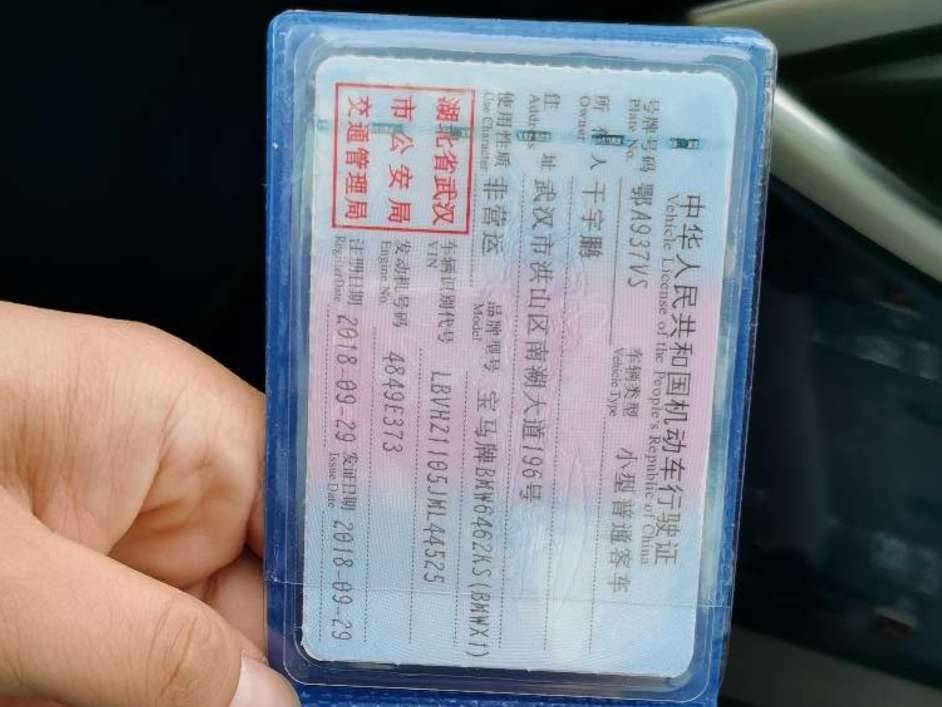 中华人民共和国机动车行驶证
Vehicle License of the People's Republic of China
号牌号码 鄂A937VS 车辆类型 小型普通客车
Plate No. Vehicle Type
所有人 干宇鹏
Owner
住址 武汉市洪山区南湖大道196号
Address
使用性质 非营运 品牌型号 宝马牌BMW6462KS(BMWX1)
Use Character Model
湖北省武汉
市公安局
交通管理局
车辆识别代号 LBVHZ1105JML44525
VIN
发动机号码 4849E373
Engine No.
注册日期 2018-09-29 发证日期 2018-09-29
Register Date Issue Date